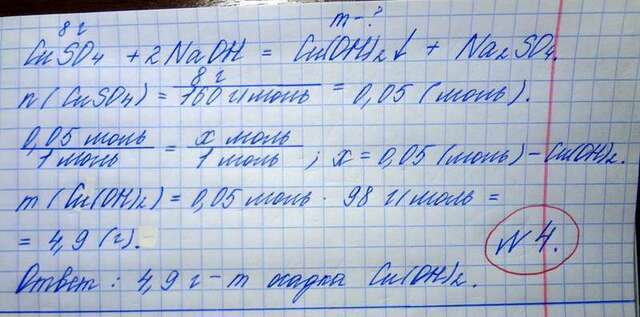 8 г m - ?
CuSO4 + 2NaOH = Cu(OH)2↓ + Na2SO4.
n(CuSO4) = 8 г / 160 г/моль = 0,05 (моль).
0,05 моль / 1 моль = x моль / 1 моль ; x = 0,05 (моль) - Cu(OH)2.
m(Cu(OH)2) = 0,05 моль · 98 г/моль =
= 4,9 (г).
N 4.
Ответ: 4,9 г - m осадка Cu(OH)2.